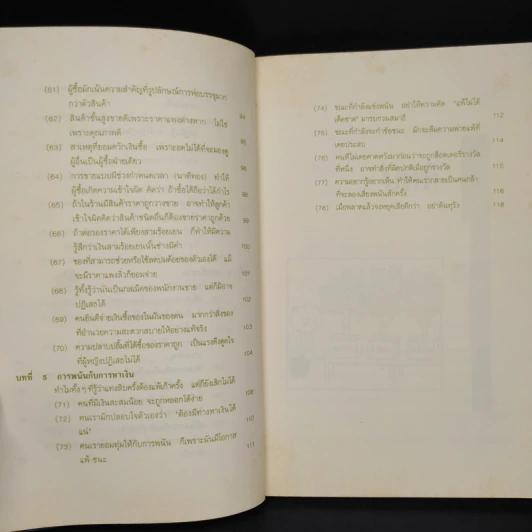 (61) ผู้ซื้อมักเน้นความสำคัญที่รูปลักษณ์การห่อบรรจุมาก
กว่าตัวสินค้า
(62) สินค้าชั้นสูงขายดีเพราะราคาแพงต่างหาก ไม่ใช่ 94
เพราะคุณภาพดี
(63) สาเหตุที่ยอมควักเงินซื้อ เพราะอดไม่ได้ที่จะมองดู
ผู้อื่นเป็นผู้ซื้อฝ่ายเดียว
(64) การขายแบบมีช่วงกำหนดเวลา (นาทีทอง) ทำให้
ผู้ซื้อเกิดความเข้าใจผิด คิดว่า ถ้าซื้อได้ถือว่าได้กำไร
(65) ถ้าในร้านมีสินค้าราคาถูกวางขาย อาจทำให้ลูกค้า
เข้าใจผิดคิดว่าสินค้าชนิดอื่นก็ต้องขายราคาถูกด้วย
(66) ถ้าต่อรองราคาได้เพียงสามร้อยเยน ก็ทำให้มีความ
รู้สึกว่าเงินสามร้อยเยนนั้นช่างมีค่า
(67) ของที่สามารถช่วยหรือใช้ลดปมด้อยของตัวเองได้ แม้
จะมีราคาแพงลิ่วก็ยอมจ่าย
(68) รู้ทั้งรู้ว่านั่นเป็นกลเม็ดของพนักงานขาย แต่ก็มิอาจ
ปฏิเสธได้ 102
(69) คนยินดีจ่ายเงินซื้อของในฝันของตน มากกว่าสิ่งของ
ที่อำนวยความสะดวกสบายให้อย่างแท้จริง 103
(70) ความปลาบปลื้มที่ได้ซื้อของราคาถูก เป็นแรงดึงดูดใจ
ที่ผู้หญิงปฏิเสธไม่ได้ 104
บทที่ 5 การพนันกับการหาเงิน
ทำไมทั้งๆ ที่รู้ว่าแทงสิบครั้งต้องแพ้เก้าครั้ง แต่ก็ยังเลิกไม่ได้
(71) คนที่มีเงินสะสมน้อย จะถูกหลอกได้ง่าย 108
(72) คนเรามักปลอบใจตัวเองว่า "ต้องมีทางหาเงินได้
แน่" 110
(73) คนเรายอมทุ่มให้กับการพนัน ก็เพราะมันมีโอกาส
แพ้-ชนะ 111
(74) ขณะที่กำลังแข่งพนัน อย่าให้ความคิด "แพ้ไม่ได้
เด็ดขาด" มารบกวนสมาธิ 112
(75) ขณะที่กำลังจะกำชัยชนะ มักจะลืมความพ่ายแพ้ที่
เคยประสบ 114
(76) คนที่ไม่เคยคาดหวังมาก่อนว่าจะถูกล็อตเตอรี่รางวัล
ที่หนึ่ง อาจทำสิ่งที่ผิดปกติเมื่อถูกรางวัล 115
(77) ความอยากรู้อยากเห็น ทำให้คนเรากลายเป็นคนกล้า
ที่จะลองเสี่ยงพนันสักครั้ง 116
(78) เมื่อพลาดแล้วจงหยุดเสียดีกว่า อย่าดันทุรัง 118